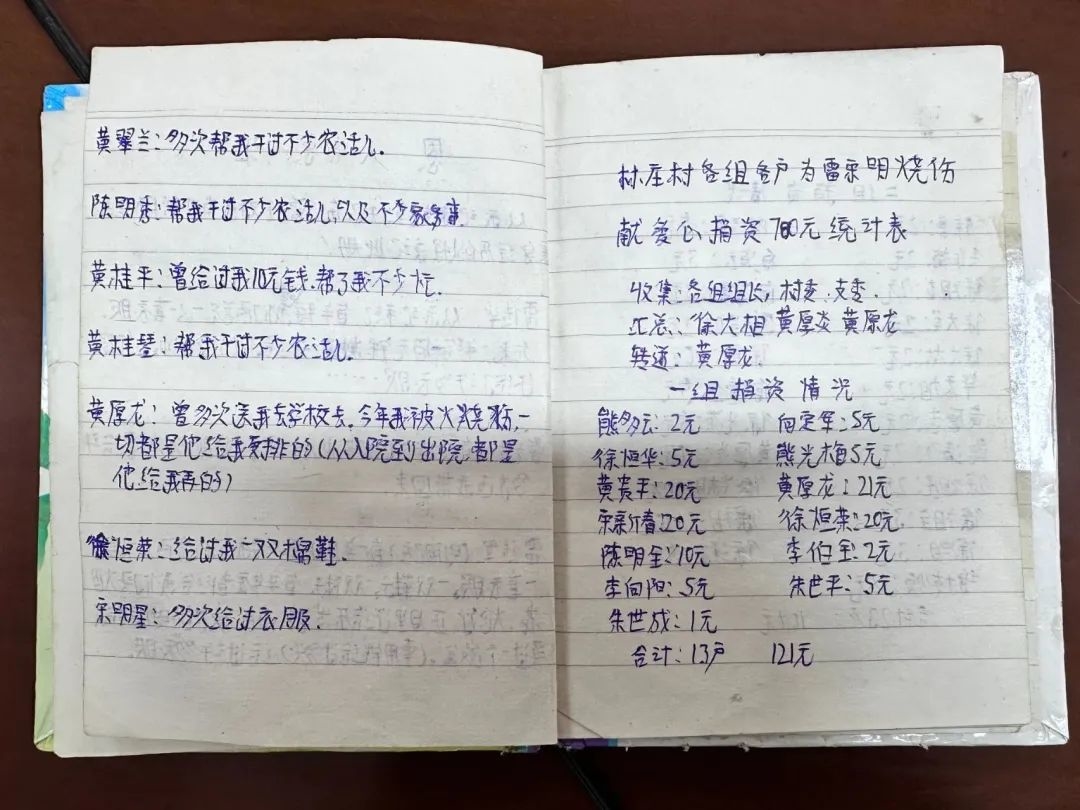 黄翠兰：多次帮我干过不少农活儿.
陈明秀：帮我干过不少农活儿以及不少家务事.
黄桂平：曾给过我10元钱.帮了我不少忙.
黄桂琴：帮我干过不少农活儿.
黄厚龙：曾多次送我去学校去。今年我被火烧伤,一
切都是他给我安排的(从入院到出院,都是
他给我弄的)
徐恒荣：给过我一双棉鞋.
宋明星：多次给过衣服.
林庄村各组各户为雷宗明烧伤
献爱心捐资700元统计表
收集：各组组长,村委.支委.
汇总：徐大相 黄厚炎 黄厚龙
转递：黄厚龙.
一组捐资情况
熊多云：2元 向定军：5元
徐恒华：5元 熊光梅5元
黄贵平：20元 黄厚龙：21元
宋新春：20元 徐恒荣：20元.
陈明全：10元 李伯全：2元
李向阳：5元 朱世平：5元
朱世成：1元
合计：13户 121元